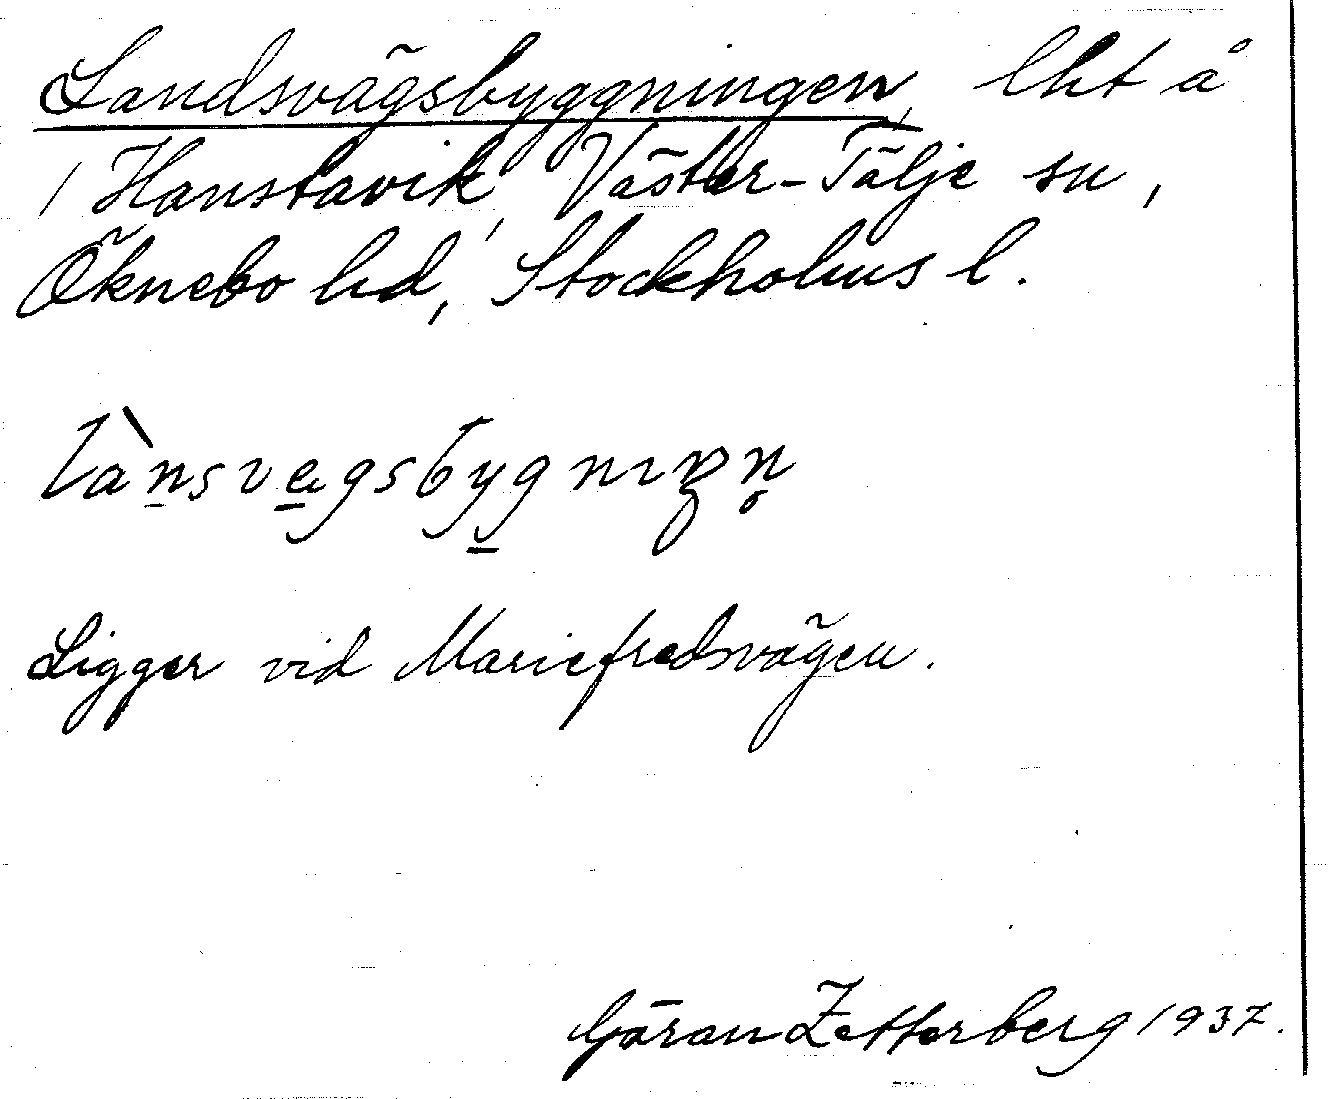 Landsvägsbyggningen, lht å
1 Hanstavik, Väster-Tälje sn,
Öknebo hd, Stockholms l.
làn̲sve̲gsby̲gnıŋn̥
Ligger vid Mariefredsvägen.
Göran Zetterberg 1937.